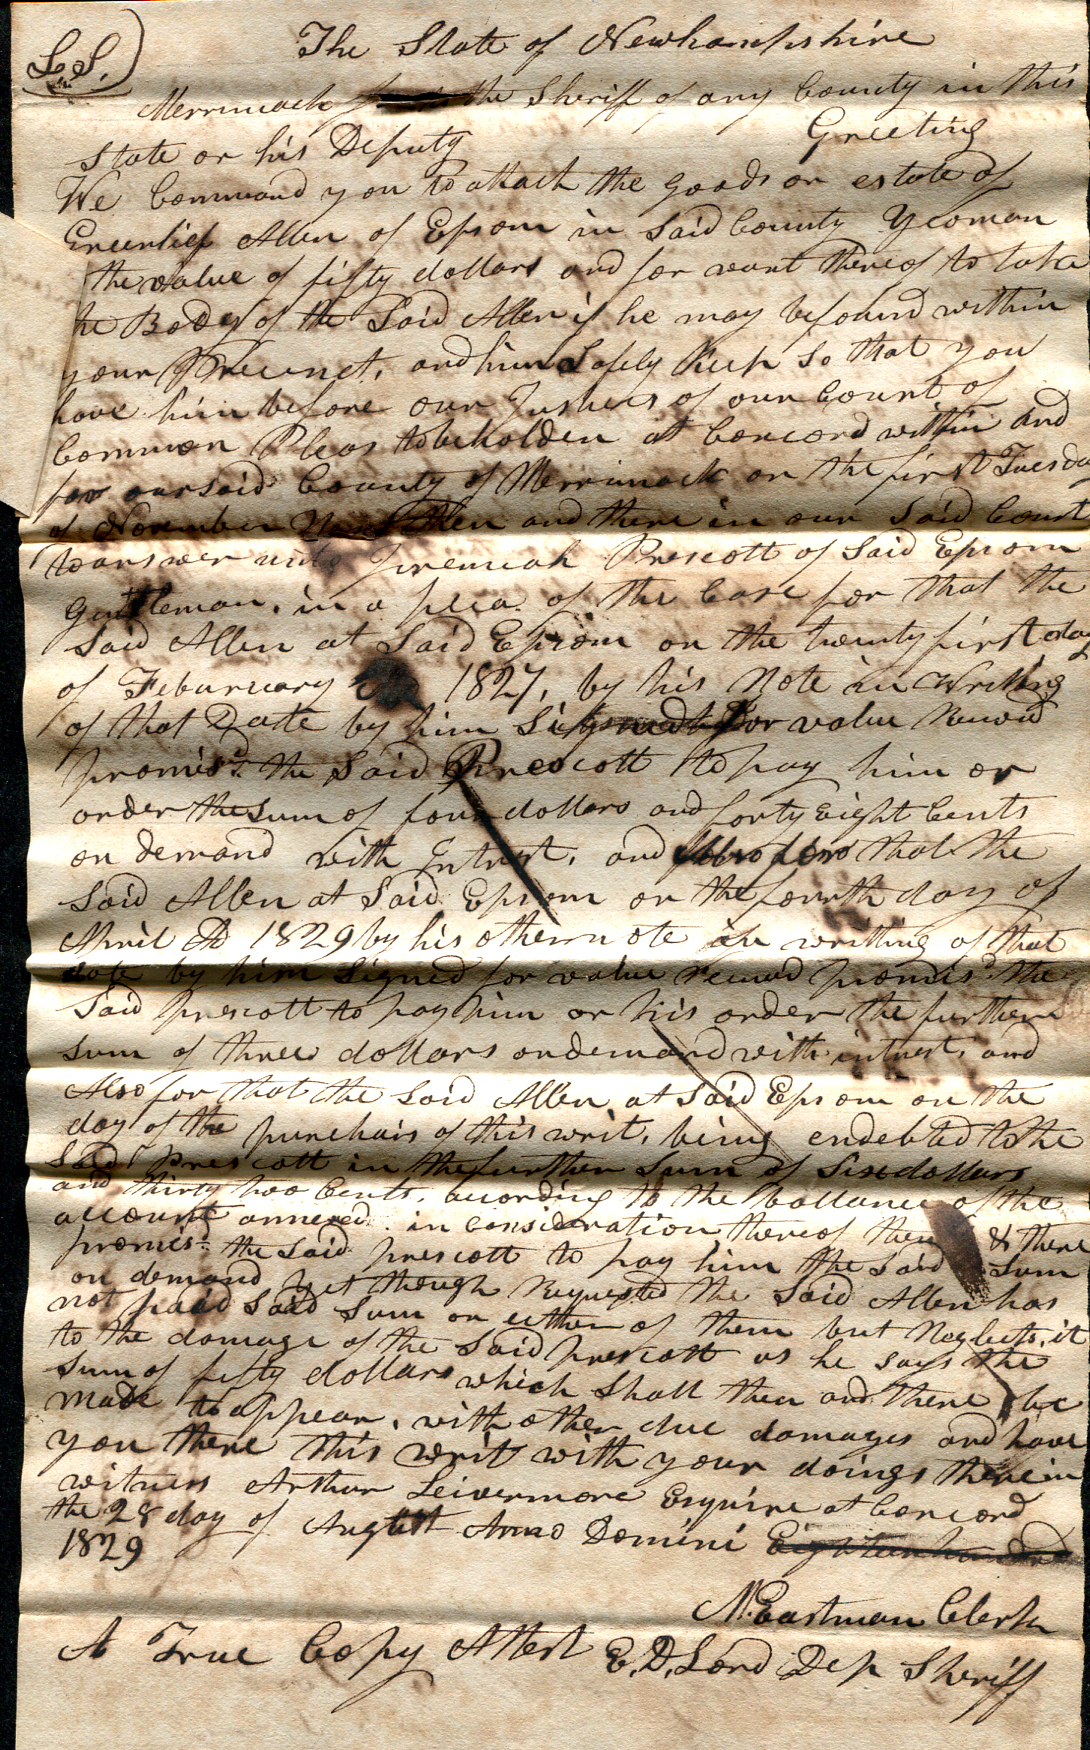 L.S.)
The State of Newhampshire
Merrimack the Sheriff of any County in this
State or his Deputy Greeting
We Command you to attach the goods or estate of
Greenlief Allen of Epsom in Said County Yeoman
the value of fifty dollars and for want thereof to take
he Body of the Said Allen if he may be found within
your Precinct, and him Safely Keep So that you
have him before our Justices of our Court of
Common Pleas to be holden at Concord within and
for our said County of Merrimack on the first Tuesday
of November Next then and there in our Said Court
to answer unto Jeremiah Prescott of Said Epsom
Gentleman, in a plea of the Case for that the
Said Allen at Said Epsom on the twenty first day
of Feburuary 1827, by his Note in Writing
of that Date by him Signed for value Received
promis.d the Said Prescott to pay him or
order the sum of four dollars and forty Eight Cents
on demand with Intrest, and Also for that the
Said Allen at Said Epsom on the fourth day of
April AD 1829 by his other note in writting of that
date by him Signed for value received promis.d the
Said prescott to pay him or his order the further
sum of three dollars on demand with intrest, and
Also for that the Said Allen at Said Epsom on the
day of the purchais of this writ, being endebted to the
Said Prescott in the further Sum of Six dollars
and thirty two Cents, according to the ballance of the
account annexed in Consideration thereof then & there
promis.d the Said prescott to pay him the Said Sum
on demand yet though Requested the Said Allen has
not paid Said Sum or either of them but Neglects it
to the damage of the Said prescott as he says the
Sum of fifty dollars which Shall then and there be
made to appear, with other due damages and have
you there this writ with your doings therein
witness Arthur Leivermore Esquire at Concord
the 28 day of August Anno Domini Eighteen hundred
1829
N. Eastman Clerk
A True Copy Attest E. D. Lord Dep Sheriff